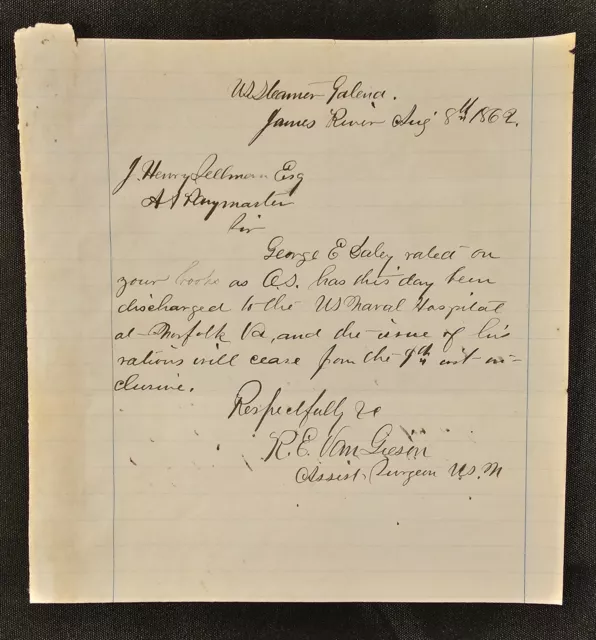 US Steamer Galena.
James River Aug 8th 1862.
J. Henry Sellman Esq
A A Paymaster
Sir
George E Saley rated on
your books as O.S. has this day been
discharged to the US Naval Hospital
at Norfolk Va, and the issue of his
rations will cease from the 9th inst in-
clusive.
Respectfully &c
R. E. Van Giesön
Assist. Surgeon U.S.N